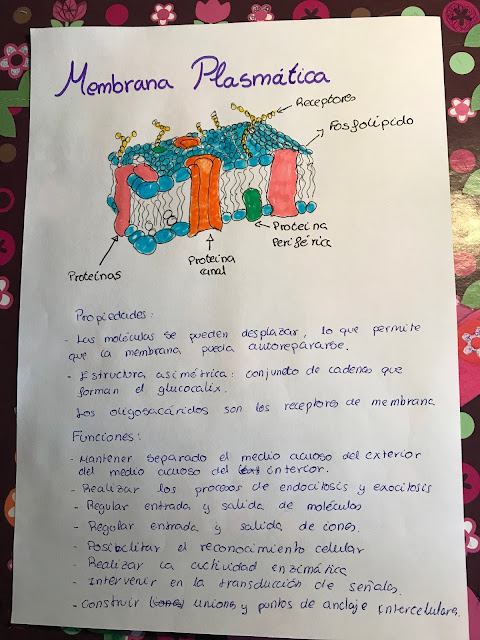 Membrana Plasmática
Receptores
Fosfolípido
Proteína
Periférica
Proteína
canal
Proteínas
Propiedades:
- Las moléculas se pueden desplazar, lo que permite
que la membrana pueda autorepararse.
- Estructura asimétrica: conjunto de cadenas que
forman el glucocalix.
Los oligosacáridos son los receptores de membrana
Funciones:
- Mantener separado el medio acuoso del exterior
del medio acuoso del interior.
- Realizar los procesos de endocitosis y exocitosis
- Regular entrada y salida de moléculas
- Regular entrada y salida de iones.
- Posibilitar el reconocimiento celular
- Realizar la actividad enzimática
- Intervenir en la transducción de señales.
- Construir uniones y puntos de anclaje intercelulares.